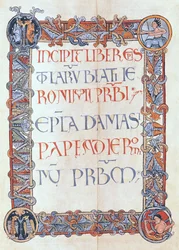 INCIPIT LIBER EPS
TLARV BEATI IE
RONIMI PRBI
EPLA DAMAS
PAPE AD IERO
PRBM